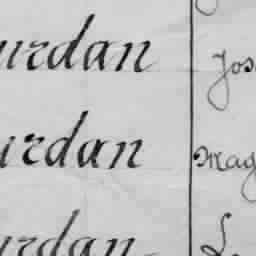 urdan Jos
urdan Mag
urdan L